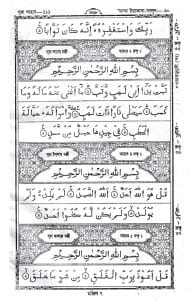 رَبِّكَ وَاسْتَغْفِرْهُ ؕ اِنَّهٗ كَانَ تَوَّابًا
بِسْمِ اللّٰهِ الرَّحْمٰنِ الرَّحِيْمِ
تَبَّتْ يَدَآ اَبِيْ لَهَبٍ وَّتَبَّ مَآ اَغْنٰى عَنْهُ مَالُهٗ
وَمَا كَسَبَ سَيَصْلٰى نَارًا ذَاتَ لَهَبٍ وَّامْرَاَتُهٗ حَمَّالَةَ
الْحَطَبِ فِيْ جِيْدِهَا حَبْلٌ مِّنْ مَّسَدٍ
بِسْمِ اللّٰهِ الرَّحْمٰنِ الرَّحِيْمِ
قُلْ هُوَ اللّٰهُ اَحَدٌ اَللّٰهُ الصَّمَدُ لَمْ يَلِدْ وَلَمْ
يُوْلَدْ وَلَمْ يَكُنْ لَّهٗ كُفُوًا اَحَدٌ
بِسْمِ اللّٰهِ الرَّحْمٰنِ الرَّحِيْمِ
قُلْ اَعُوْذُ بِرَبِّ الْفَلَقِ مِنْ شَرِّ مَا خَلَقَ